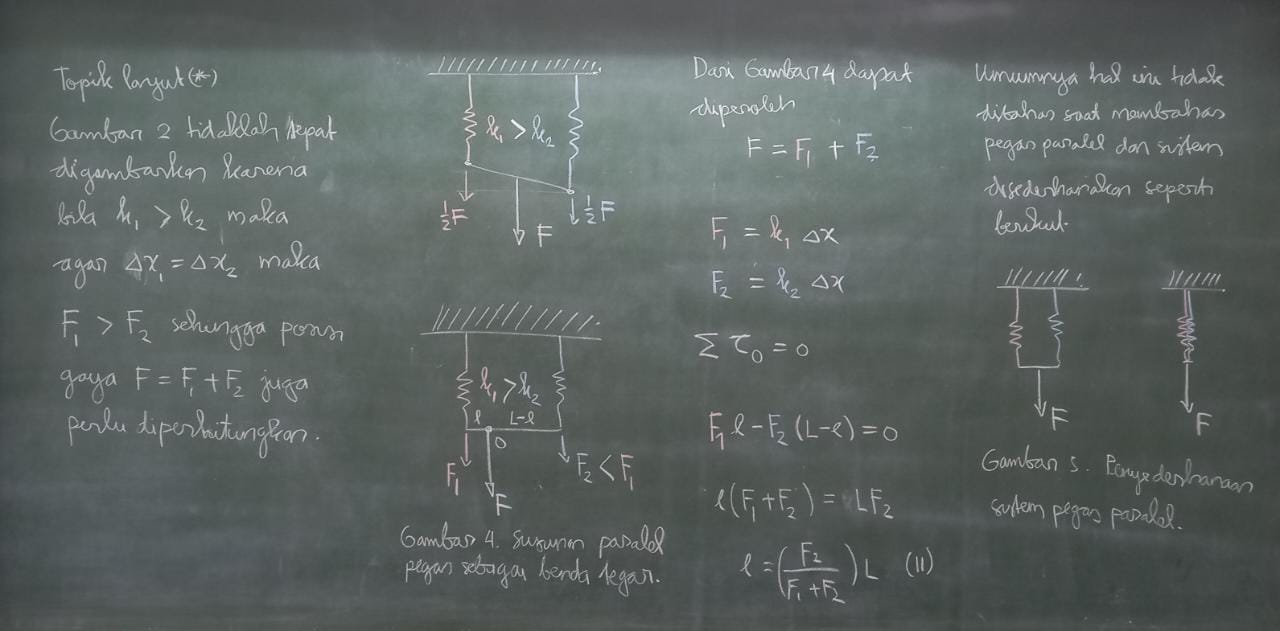 Topik lanjut (*)
Gambar 2 tidaklah tepat
digambarkan karena
bila k₁ > k₂ maka
agar Δx₁ = Δx₂ maka
F₁ > F₂ sehingga posisi
gaya F = F₁ + F₂ juga
perlu diperhitungkan.
k₁ > k₂
½F
½F
F
k₁ > k₂
l
L-l
O
F₁
F₂ < F₁
F
Gambar 4. Susunan paralel
pegas sebagai benda tegar.
Dari Gambar 4 dapat
diperoleh
F = F₁ + F₂
F₁ = k₁ Δx
F₂ = k₂ Δx
Σ τ₀ = 0
F₁ l - F₂ (L-l) = 0
l(F₁+F₂) = LF₂
l = (F₂/(F₁+F₂)) L (11)
Umumnya hal ini tidak
dibahas saat membahas
pegas paralel dan sistem
disederhanakan seperti
berikut.
F
F
Gambar 5. Penyederhanaan
sistem pegas paralel.